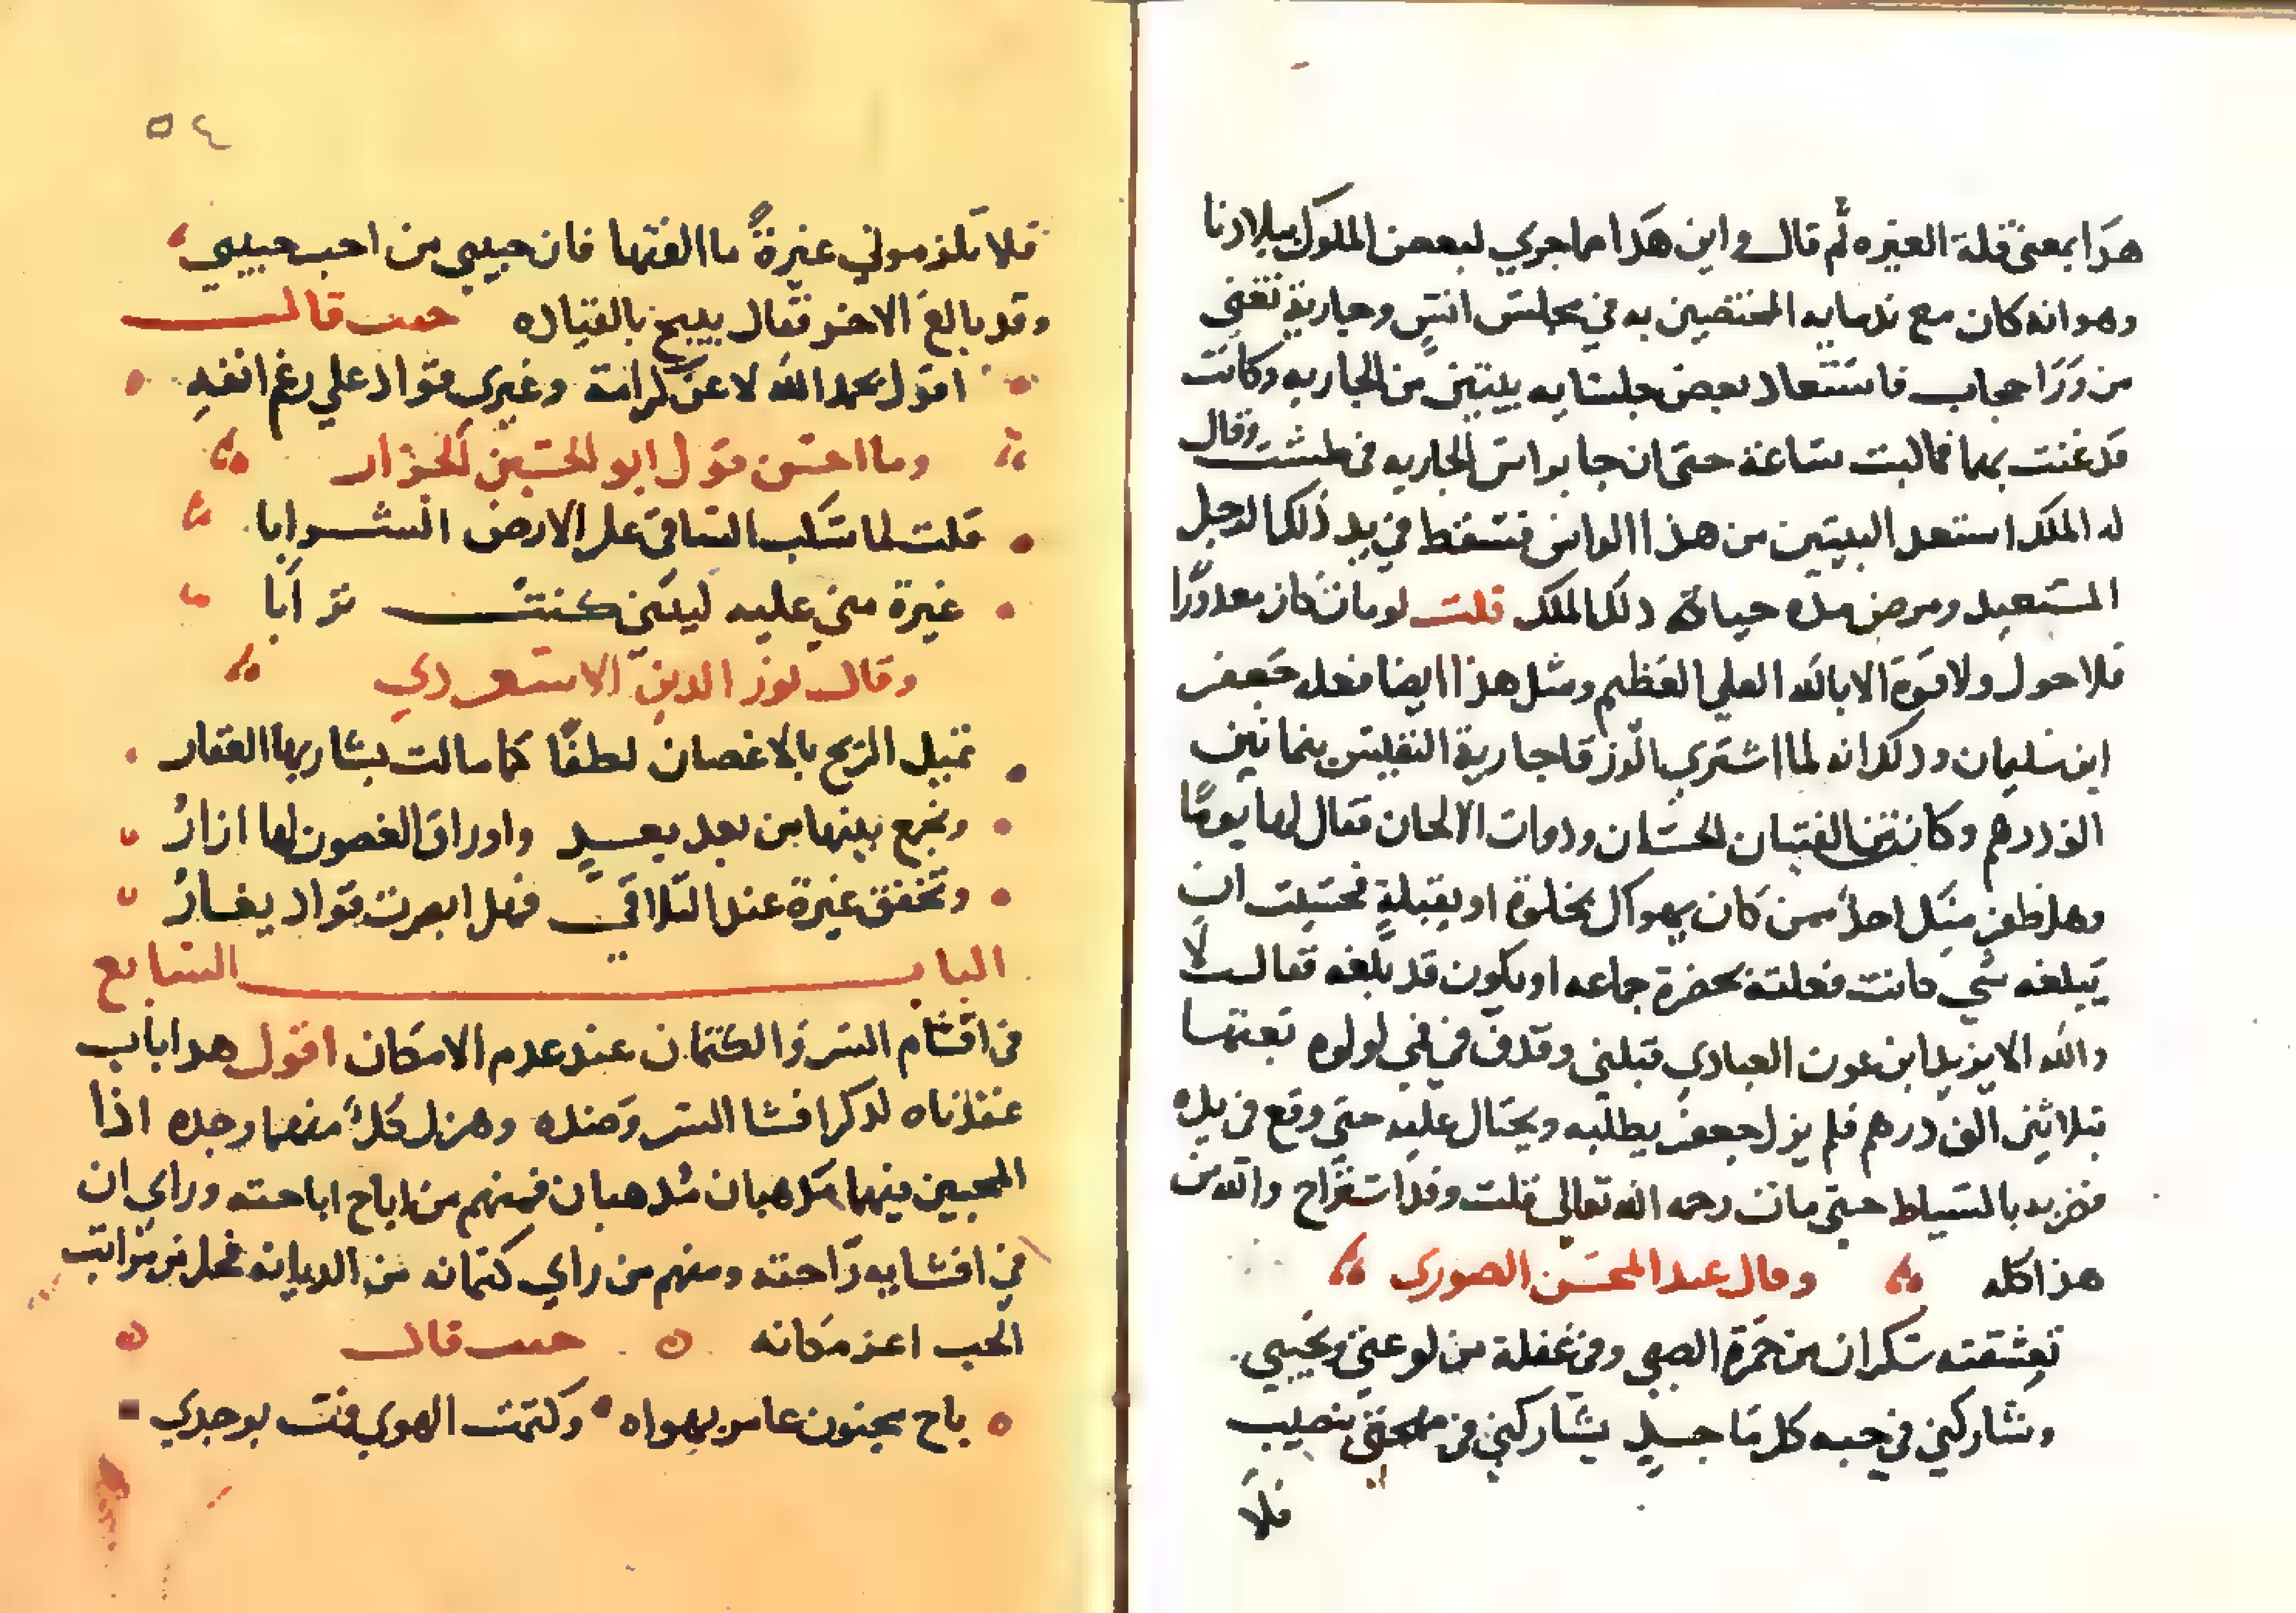 هذا بمعني قلة الغيره ثم قال واين هذا مما جري لبعض الملوك ببلادنا
وهو انه كان مع ندمايه المختصين به في مجلس انس وجارية تغني
من ورا حجاب فاستعاد بعض جلسايه بيتين من الجاريه وكانت
قد غنت بهما فما لبث ساعة حتي ان جا براس الجاريه في طشت وقال
له الملك استعد البيتين من هذا الراس فسقط في يد ذلك الرجل
المستعيد ومرض مدة حياة ذلك الملك قلت لو مات كان معذورا
فلا حول ولا قوة الا بالله العلي العظيم ومثل هذا ايضا فعله جعفر
ابن سليمان وذلك انه لما اشتري الزرقا جارية النفليس بثمانين
الف درهم وكانت من الفتيان الحسان وذوات الالحان فقال لها يوما
وهل ظفر منك احد ممن كان يهواك بخلوة او بقبلة فخشيت ان
يبلغه شي كانت فعلته بحضرة جماعه او يكون قد بلغه فقالت لا
والله الا يزيد ابن عون العبادي قبلني وقذف في في لولوه بعتها
بثلاثين الف درهم فلم يزل جعفر يطلبه ويحتال عليه حتي وقع في يده
فضربه بالسياط حتي مات رحمه الله تعالي قلت وقد استراح والله من
هذا كله وقال عبد المحسن الصوري
تعشقته سكران من خمرة الصبي وفي غفلة من لوعتي ونحيبي
وشاركني في حبه كل ماجد يشاركني في مهجتي بنصيب
فلا
٥٤
فلا تلزموني غيرة ما الفتها فان حبيبي من احب حبيبي
وقد بالغ الاخر فقال بيبيح بالقياده حيث قال
اقول بحمد الله لا عن كرامة وغيري قواد علي رغم انفه
وما احسن قول ابو الحسين الجزار
قلت لما سكب الساقي علي الارض الشرابا
غيرة مني عليه ليتني كنت ترابا
وقال نور الدين الاسعردي
تميل الريح بالاغصان لطفا كما مالت بشاربها العقار
وتجمع بينها من بعد بعد واوراق الغصون لها ازار
وتخفق غيرة عند التلاقي فهل ابصرت قواد يغار
الباب السابع
في اقشام السر والكتمان عند عدم الامكان اقول هدا باب
عقدناه لذكر افشا السر وضده وهزل كلا منهما وجده اذا
المحبين بينهما مذهبان مذهبان فمنهم من اباح اباحته وراي ان
في افشايه راحته ومنهم من راي كتمانه من الديانه فحل من مراتب
الحب اعز مكانه حيث قال
باح مجنون عامر بهواه وكتمت الهوي فمت بوجدي